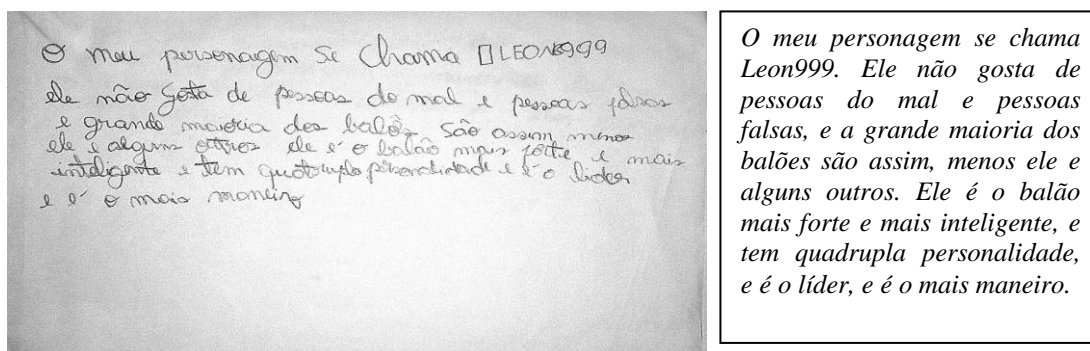 O meu personagem se chama LEON999
ele não gosta de pessoas do mal e pessoas falsas
e grande maioria dos balões são assim menos
ele e alguns outros ele é o balão mais forte e mais
inteligente e tem quatrupla personalidade e é o lider
e é o mais maneiro
O meu personagem se chama
Leon999. Ele não gosta de
pessoas do mal e pessoas
falsas, e a grande maioria dos
balões são assim, menos ele e
alguns outros. Ele é o balão
mais forte e mais inteligente, e
tem quadrupla personalidade,
e é o líder, e é o mais maneiro.